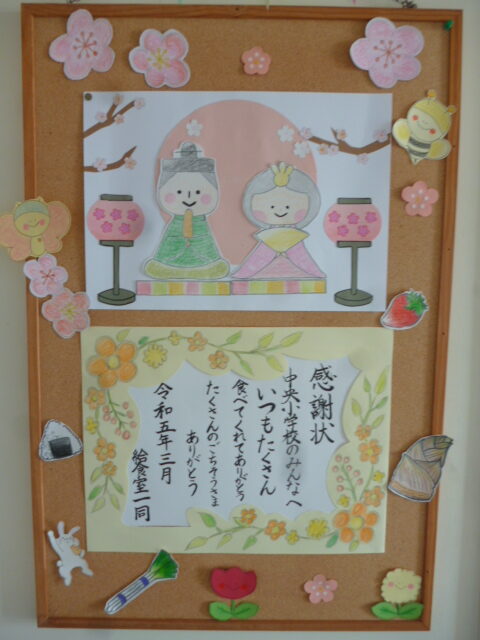 感謝状
中央小学校のみんなへ
いつもたくさん
食べてくれてありがとう
たくさんのごちそうさま
ありがとう
令和五年三月
給食室一同